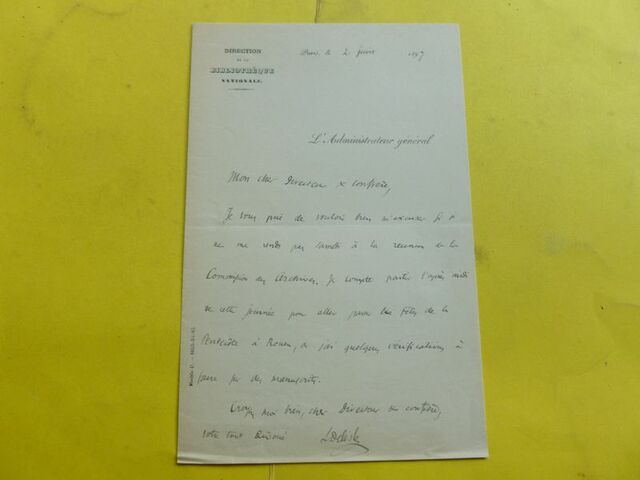 DIRECTION
DE LA
BIBLIOTHÈQUE
NATIONALE
Paris, le 2 juin 1897
L'Administrateur général
Mon cher Directeur & confrère,
Je vous prie de vouloir bien m'excuser si je
ne me rends pas samedi à la réunion de la
Commission des Archives. Je compte partir l'après midi
de cette journée pour aller passer les fêtes de la
Pentecôte à Rouen, où j'ai quelques vérifications à
faire sur des manuscrits.
Croyez moi bien, cher Directeur et confrère,
votre tout dévoué L Delisle